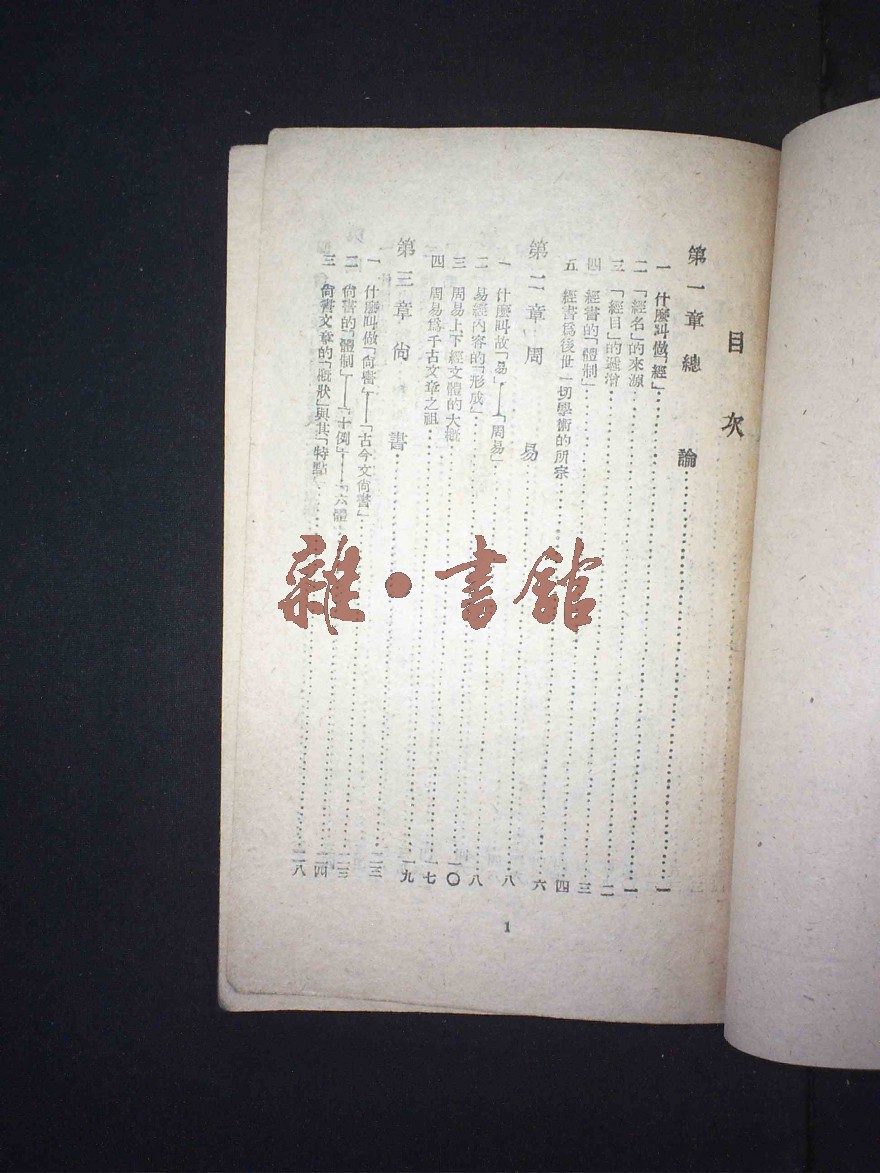 目次
第一章 總論……一
一 什麼叫做「經」……一
二 「經名」的來源……二
三 「經目」的遞增……三
四 經書的「體制」……四
五 經書爲後世一切學術的所宗……六
第二章 周易……八
一 什麼叫故「易」——「周易」……八
二 易經內容的「形成」……一〇
三 周易上下經文體的大概……一七
四 周易爲千古文章之祖……一九
第三章 尙書……二三
一 什麼叫做「尙書」——「古今文尙書」……二三
二 尙書的「體制」——「十例」——「六體……二四
三 尙書文章的「概狀」與其「特點」……二八
1
雜·書館